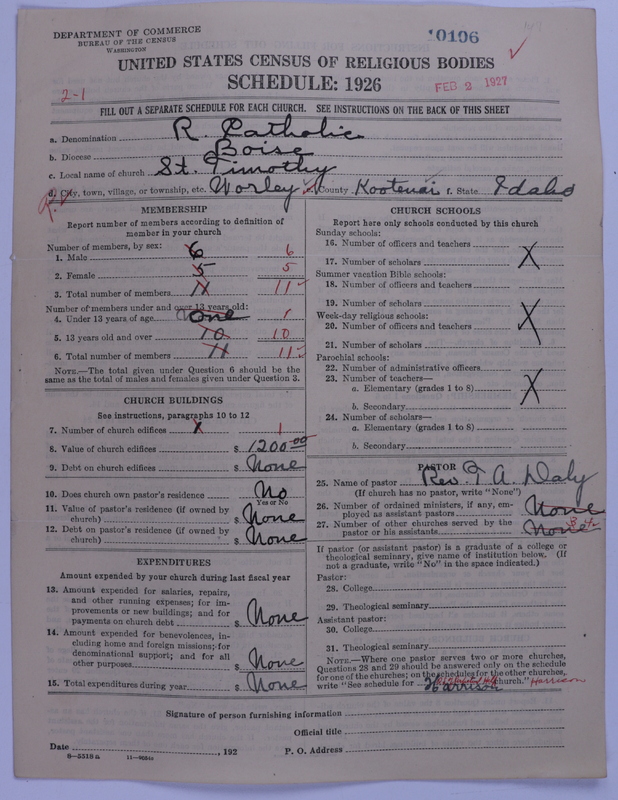 DEPARTMENT OF COMMERCE
BUREAU OF THE CENSUS
WASHINGTON
10196
UNITED STATES CENSUS OF RELIGIOUS BODIES
SCHEDULE: 1926
FEB 2 1927
2-1
FILL OUT A SEPARATE SCHEDULE FOR EACH CHURCH. SEE INSTRUCTIONS ON THE BACK OF THIS SHEET
a. Denomination R. Catholic
b. Diocese Boise
c. Local name of church St. Timothy
d. City, town, village, or township, etc. Worley e. County Kootenai f. State Idaho
R.
MEMBERSHIP
Report number of members according to definition of member in your church
Number of members, by sex:
1. Male 6 6
2. Female 5 5
3. Total number of members 11 11
Number of members under and over 13 years old:
4. Under 13 years of age None 1
5. 13 years old and over 10 10
6. Total number of members 11 11
NOTE.—The total given under Question 6 should be same as the total of males and females given under Question 3.
CHURCH BUILDINGS
See instructions, paragraphs 10 to 12
7. Number of church edifices 1 1
8. Value of church edifices $ 1200.00
9. Debt on church edifices $ None
10. Does church own pastor's residence No
Yes or No
11. Value of pastor's residence (if owned by church) $ None
12. Debt on pastor's residence (if owned by church) $ None
EXPENDITURES
Amount expended by your church during last fiscal year
13. Amount expended for salaries, repairs, and other running expenses; for improvements or new buildings; and for payments on church debt $ None
14. Amount expended for benevolences, including home and foreign missions; for denominational support; and for all other purposes $ None
15. Total expenditures during year $ None
CHURCH SCHOOLS
Report here only schools conducted by this church
Sunday schools:
16. Number of officers and teachers
17. Number of scholars
Summer vacation Bible schools:
18. Number of officers and teachers
19. Number of scholars
Week-day religious schools:
20. Number of officers and teachers
21. Number of scholars
Parochial schools:
22. Number of administrative officers
23. Number of teachers—
a. Elementary (grades 1 to 8)
b. Secondary
24. Number of scholars—
a. Elementary (grades 1 to 8)
b. Secondary
PASTOR
25. Name of pastor Rev. T. A. Daly
(If church has no pastor, write "None")
26. Number of ordained ministers, if any, employed as assistant pastors None
27. Number of other churches served by the pastor or his assistants None
If pastor (or assistant pastor) is a graduate of a college or theological seminary, give name of institution below. (If not a graduate, write "No" in the space indicated.)
Pastor:
28. College
29. Theological seminary
Assistant pastor:
30. College
31. Theological seminary
NOTE.—Where one pastor serves two or more churches, Questions 28 and 29 should be answered only on the schedule for one of the churches; on the schedules for the other churches, write "See schedule for church." Harrison
Harrison
Signature of person furnishing information
Official title
Date , 192 P. O. Address
8—5518a 11—9054c